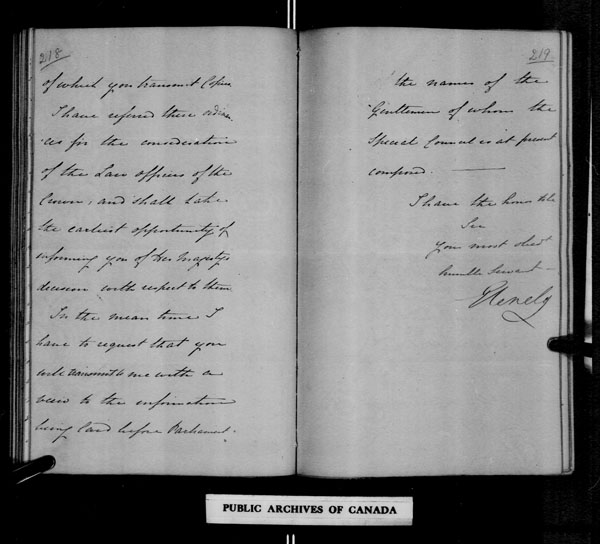 218
of which you transmit Copies
I have referred these ordinan
-ces for the consideration
of the Law officers of the
Crown, and shall take
the earliest opportunity of
informing you of Her Majesty's
decision with respect to them
In the mean time I
have to request that you
will transmit to me with a
view to the information
being laid before Parliament
219
the names of the
Gentlemen of whom the
Special Council is at present
composed.
I have the honor to be
Sir
Your most obedt
humble Servant
Glenelg
PUBLIC ARCHIVES OF CANADA